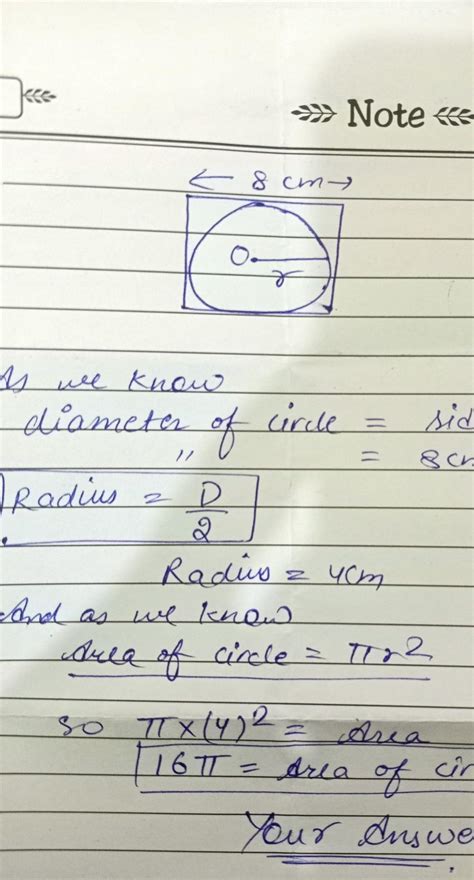 Note
← 8 cm →
O
r
As we know
diameter of circle = sid
" = 8cm
Radius = D/2
Radius = 4cm
And as we know
Area of circle = πr2
so π×(4)2 = Area
16π = Area of cir
Your Answe